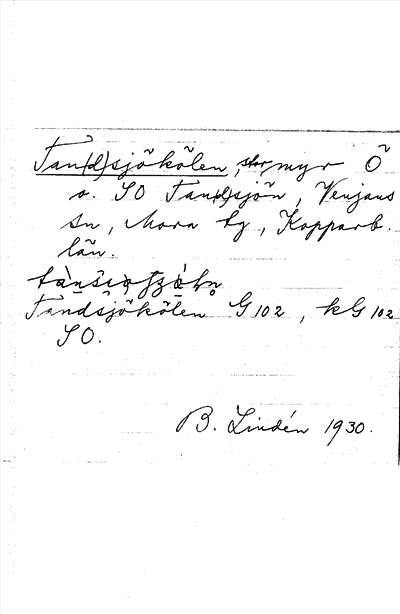 Tan(d)sjökölen, stor myr Ö
o. SO Tan(d)sjön, Venjans
sn, Mora tg, Kopparb.
län.
Tandsjökölen G 102, kG 102
SO.
B. Lindén 1930.